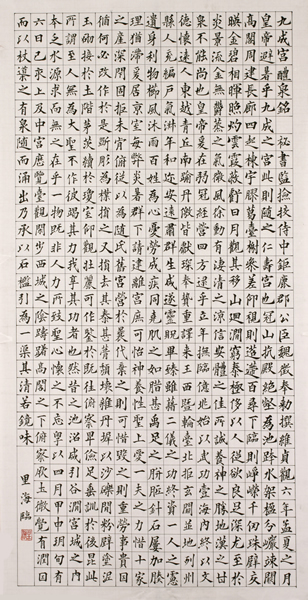 九成宮醴泉銘 秘書監撿挍侍中鉅鹿郡公臣魏徵奉勑撰維貞觀六年孟夏之月
皇帝避暑乎九成之宮此則隨之仁壽宮也冠山抗殿絕壑為池跨水架楹分巖竦闕
高閣周建長廊四起棟宇膠葛臺榭參差仰視則迢遰百尋下臨則崢嶸千仞珠壁交
暎金碧相暉照灼雲霞蔽虧日月觀其移山迴澗窮泰極侈以人從欲良足深尤至於
炎景流金無鬱蒸之氣微風徐動有淒清之涼信安體之佳所誠養神之勝地漢之甘
泉不能尚也皇帝爰在弱冠經營四方逮乎立年撫臨億兆始以武功壹海內終以文
德懷遠人東越青丘南踰丹儌皆獻琛奉贄重譯來王西暨輪臺北拒玄闕並地列州
縣人充編戶氣淑年和迩安遠肅群生咸遂靈貺畢臻雖藉二儀之功終資一人之慮
遺身利物櫛風沐雨百姓為心憂勞成疾同堯肌之如腊甚禹足之胼胝針石屢加腠
理猶滯爰居京室每弊炎暑群下請建離宮庶可怡神養性聖上愛一夫之力惜十家
之產深閉固拒未肯俯從以為隨氏舊宮營於曩代棄之則可惜毀之則重勞事貴因
循何必改作於是斲彫為樸損之又損去其泰甚葺其頹壞雜丹墀以沙礫間粉壁塗泥
玉砌接於土階茅茨續於瓊室仰觀壯麗可作鑒於既往俯察卑儉足垂訓於後昆此
所謂至人無為大聖不作彼竭其力我享其功者也然昔之池沼咸引谷澗宮城之內
本乏水源求而無之在乎一物既非人力所致聖心懷之不忘粵以四月甲申朔旬有
六日己亥上及中宮歷覽臺觀閑步西城之陰躊躇高閣之下俯察厥土微覺有潤因
而以杖導之有泉隨而涌出乃承以石檻引為一渠其清若鏡味 里海臨